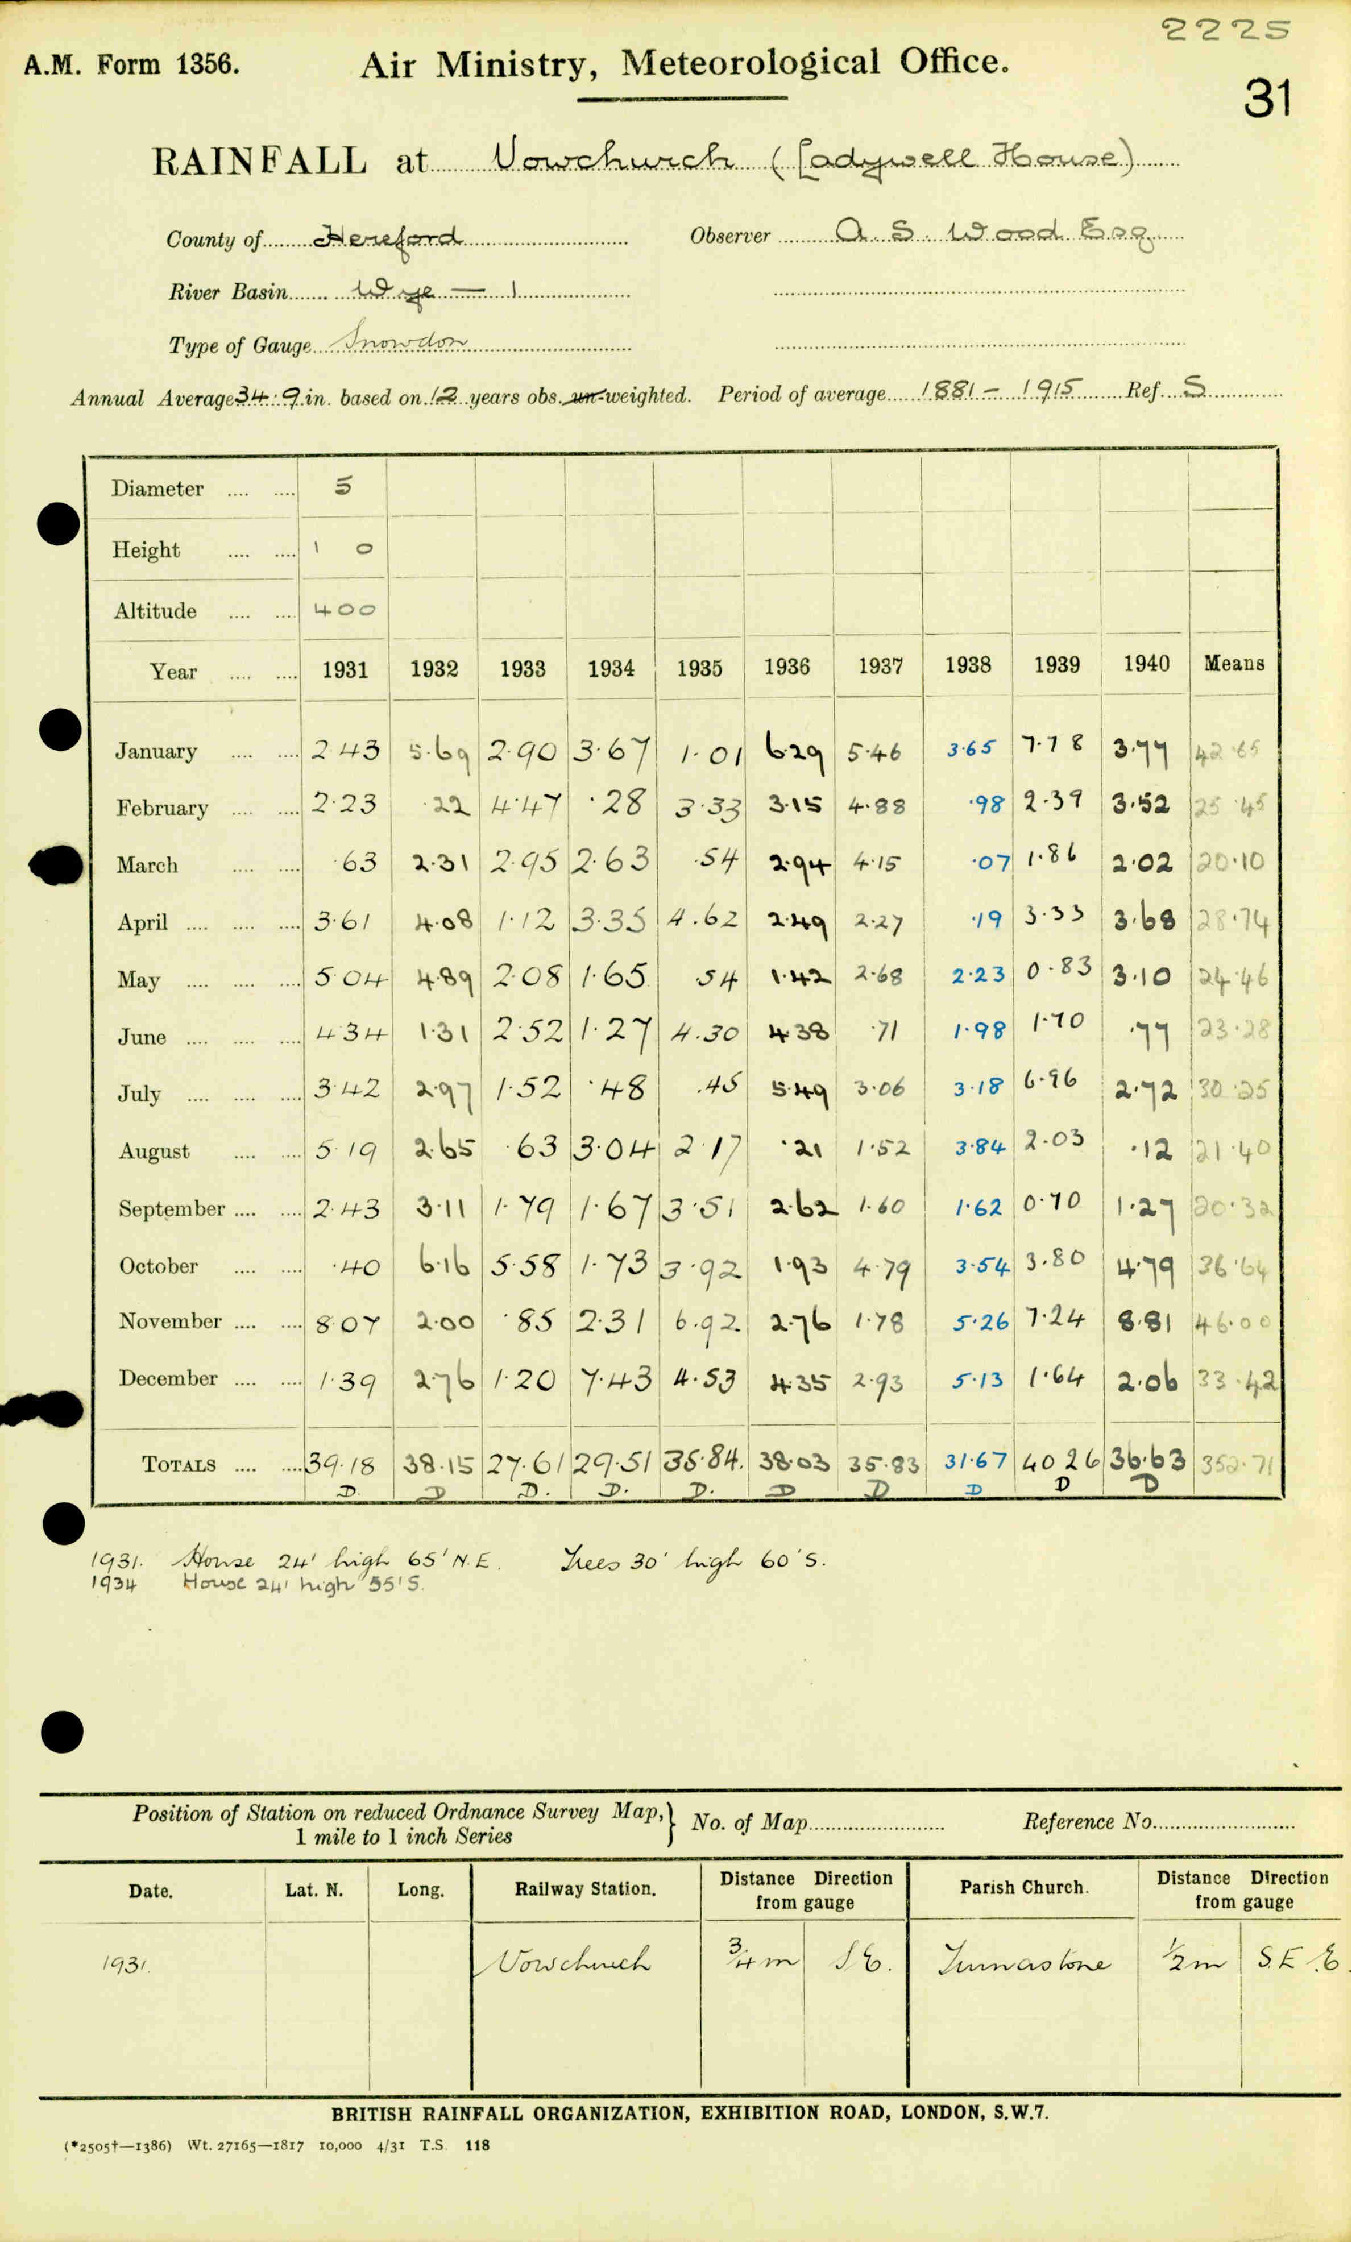 2225
A.M. Form 1356.
Air Ministry, Meteorological Office.
31
RAINFALL at Vowchurch (Ladywell House)
County of Hereford Observer A. S. Wood Esq
River Basin Wye — 1
Type of Gauge Snowdon
Annual Average 34.9 in. based on 12 years obs. un-weighted. Period of average 1881 - 1915 Ref. S
Diameter 5
Height 1 0
Altitude 400
Year 1931 1932 1933 1934 1935 1936 1937 1938 1939 1940 Means
January 2.43 5.69 2.90 3.67 1.01 6.29 5.46 3.65 7.78 3.77 42.65
February 2.23 .22 4.47 .28 3.33 3.15 4.88 .98 2.39 3.52 25.45
March .63 2.31 2.95 2.63 .54 2.94 4.15 .07 1.86 2.02 20.10
April 3.61 4.08 1.12 3.35 4.62 2.49 2.27 .19 3.33 3.68 28.74
May 5.04 4.89 2.08 1.65 .54 1.42 2.68 2.23 0.83 3.10 24.46
June 4.34 1.31 2.52 1.27 4.30 4.38 .71 1.98 1.70 .77 23.28
July 3.42 2.97 1.52 .48 .45 5.49 3.06 3.18 6.96 2.72 30.25
August 5.19 2.65 .63 3.04 2.17 .21 1.52 3.84 2.03 .12 21.40
September 2.43 3.11 1.79 1.67 3.51 2.62 1.60 1.62 0.70 1.27 20.32
October .40 6.16 5.58 1.73 3.92 1.93 4.79 3.54 3.80 4.79 36.64
November 8.07 2.00 .85 2.31 6.92 2.76 1.78 5.26 7.24 8.81 46.00
December 1.39 2.76 1.20 7.43 4.53 4.35 2.93 5.13 1.64 2.06 33.42
TOTALS 39.18 38.15 27.61 29.51 35.84. 38.03 35.83 31.67 40 26 36.63 352.71
D. D D. D. D. D D D D D
1931. House 24' high 65' N.E. Trees 30' high 60' S.
1934 House 24' high 55' S.
Position of Station on reduced Ordnance Survey Map, 1 mile to 1 inch Series } No. of Map Reference No.
Date. Lat. N. Long. Railway Station. Distance Direction from gauge Parish Church. Distance Direction from gauge
1931. Vowchurch 3/4 m S E. Turnastone 1/2 m S.E.E.
BRITISH RAINFALL ORGANIZATION, EXHIBITION ROAD, LONDON, S.W.7.
(*2505†—1386) Wt. 27165—1817 10,000 4/31 T.S. 118